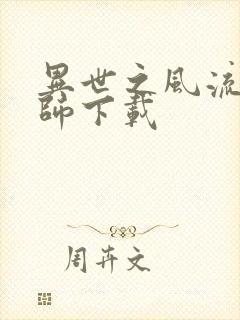 異世之風流
師下載
周卉文